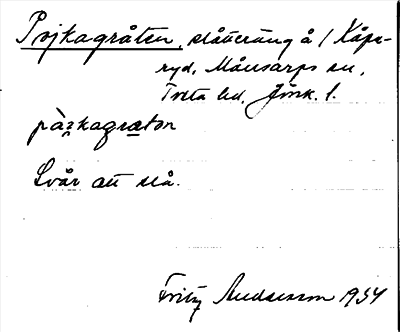 Pojkagråten, slåtteräng å 1 Kåpe-
ryd, Månsarps sn,
Tveta hd, Jönk. l.
pàʒkagrætən
Svår att slå.
Fritz Andersson 1934